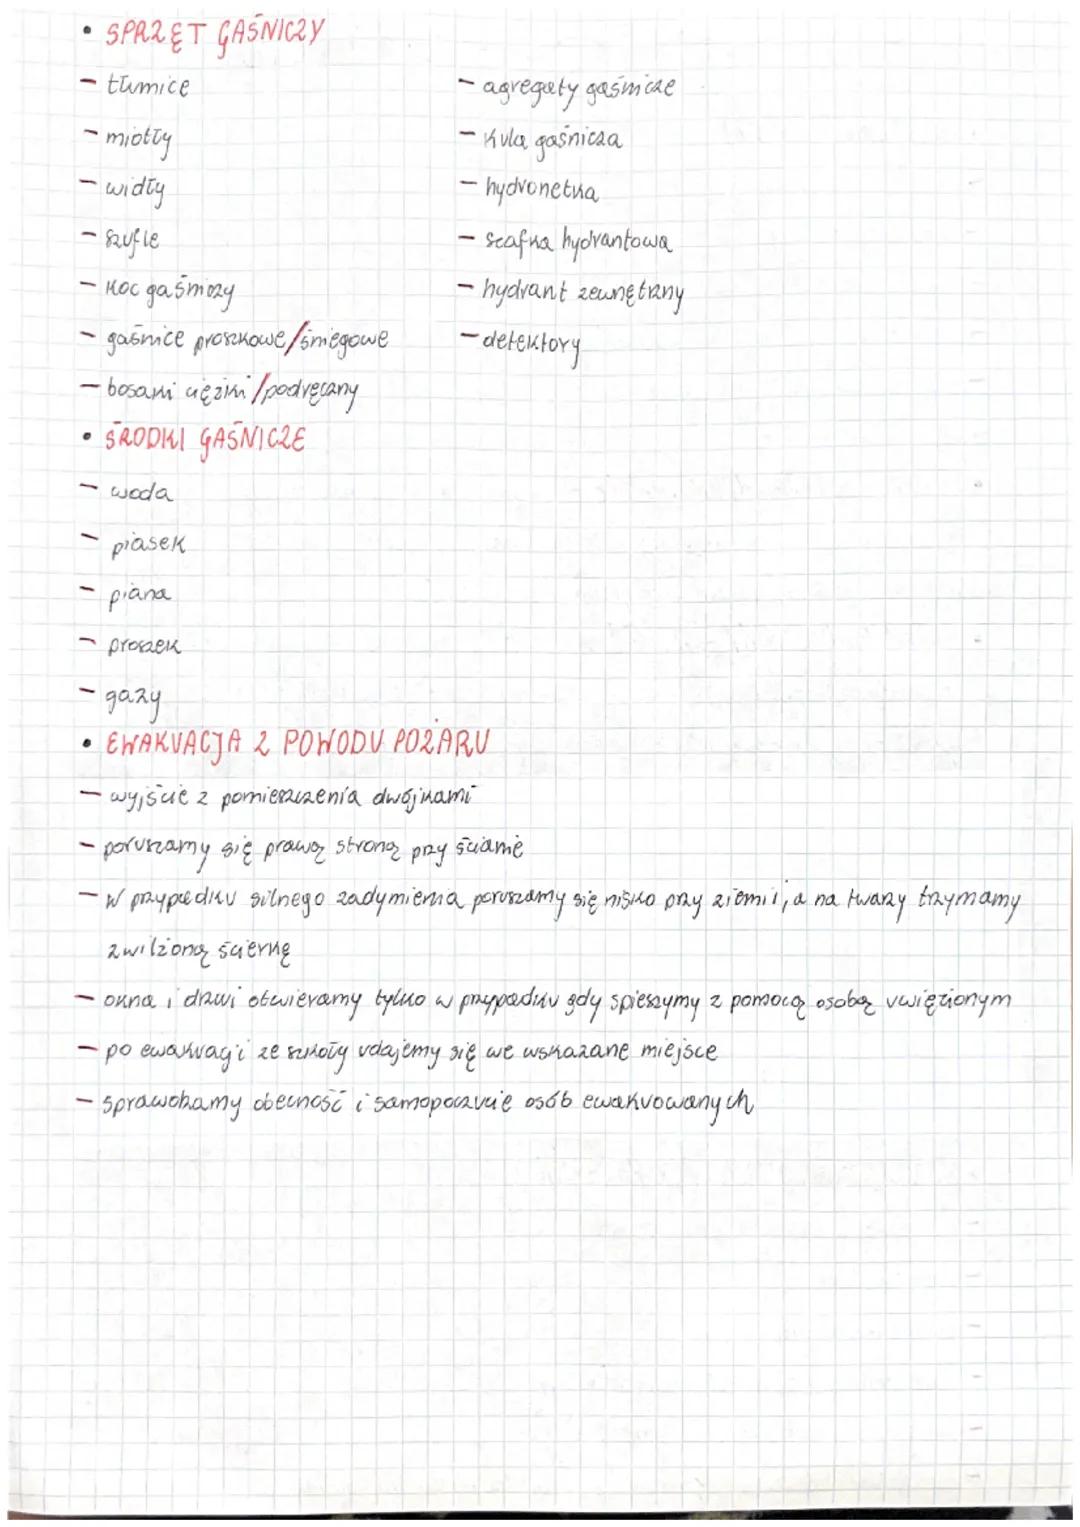 • SPRZĘT GAŚNICZY
- tłumice
- miotły
- widły
- szufle
- koc gaśniczy
- gaśnice proszkowe/śniegowe
- bosaki ciężki/podręczny
- agregaty gaśnicze
- kula gaśnicza
- hydronetka
- szafka hydrantowa
- hydrant zewnętrzny
- detektory
• ŚRODKI GAŚNICZE
- woda
- piasek
- piana
- proszek
- gazy
• EWAKUACJA Z POWODU POŻARU
- wyjście z pomieszczenia dwójkami
- poruszamy się prawą stroną przy ścianie
- w przypadku silnego zadymienia poruszamy się nisko przy ziemi, a na twarzy trzymamy
zwilżoną ścierkę
- okna i drzwi otwieramy tylko w przypadku gdy spieszymy z pomocą osobą uwięzionym
- po ewakuacji ze szkoły udajemy się we wskazane miejsce
- sprawdzamy obecność i samopoczucie osób ewakuowanych